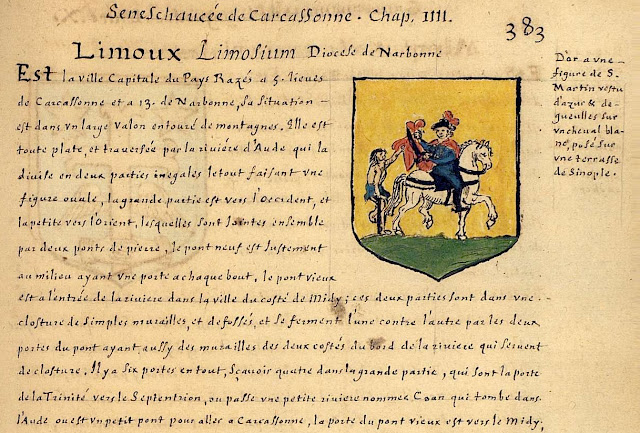 Seneschaucée de Carcassonne. Chap. IIII.
383
Limoux Limosium Diocese de Narbonne
Est la ville Capitale du Pays Razés a 5. lieues
de Carcassonne et a 13. de Narbonne, sa situation
est dans vn large valon entouré de montagnes. Elle est
toute plate, et trauersée par la riuiere d'Aude qui la
diuise en deux parties inegales le tout faisant vne
figure ouale, la grande partie est vers l'Occident, et
la petite vers l'Orient, lesquelles sont jointes ensemble
par deux ponts de pierre, le pont neuf est justement
au milieu ayant vne porte a chaque bout, le pont vieux
est a l'entrée de la riuiere dans la ville du costé de Midy; ces deux parties sont dans vne
closture de simples murailles, et de fossés, et se ferment l'une contre l'autre par les deux
portes du pont ayant aussy des murailles des deux costés du bord de la riuiere qui seruent
de closture. Il y a six portes en tout, sçauoir quatre dans la grande partie, qui sont la porte
de la Trinité vers le Septentrion, ou passe vne petite riuiere nommée Coan qui tombe dans
l'Aude ou est vn petit pont pour aller a Carcassonne, la porte du pont vieux est vers le Midy;
D'or a vne
figure de S.
Martin vestu
d'azur & de
gueulles sur
vn cheual bla-
nc, posé sur
vne terrasse
de Sinople.